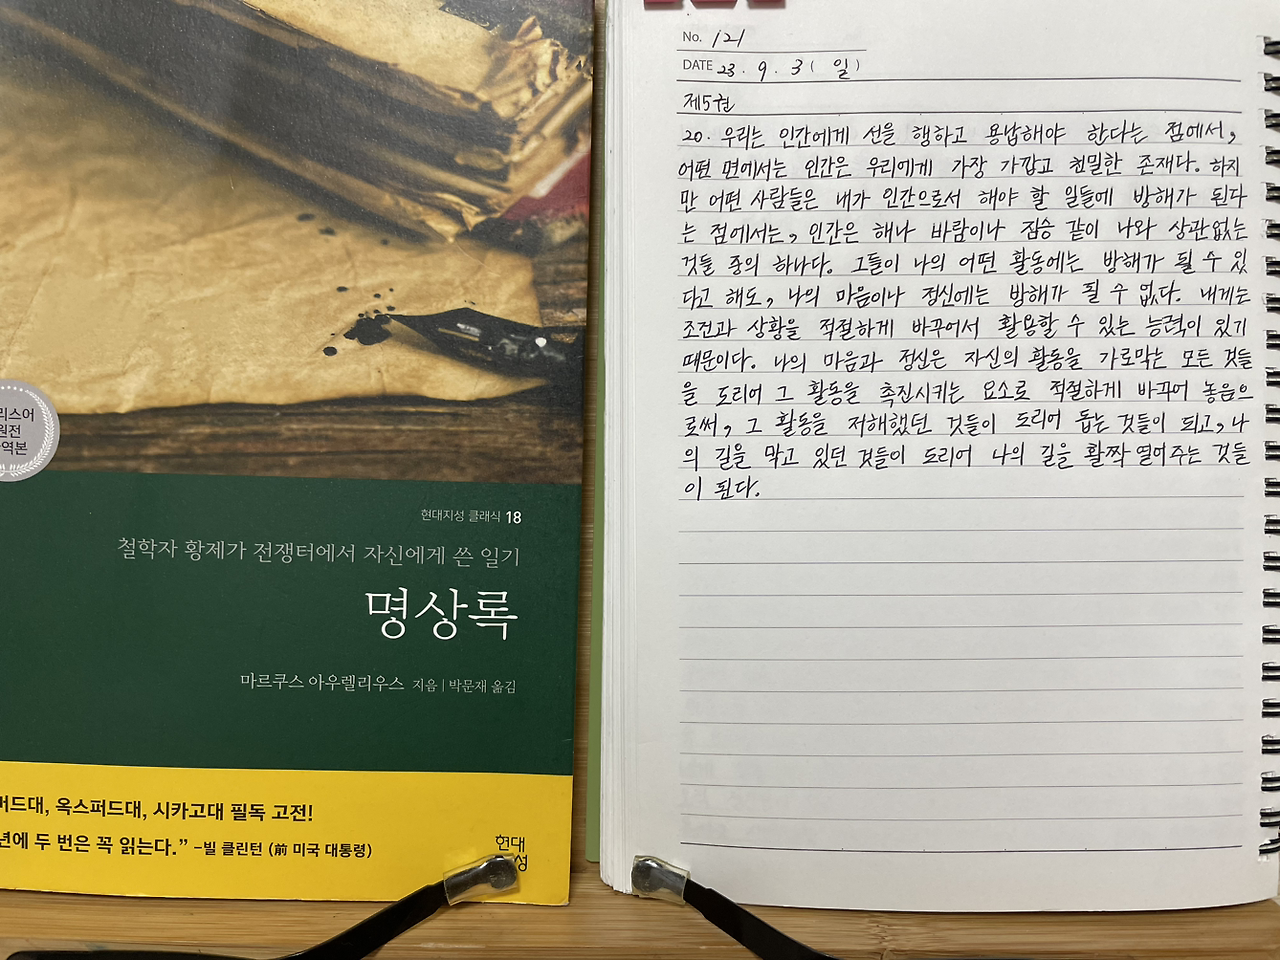 리스어
원전
역본
현대지성 클래식 18
철학자 황제가 전쟁터에서 자신에게 쓴 일기
명상록
마르쿠스 아우렐리우스 지음 | 박문재 옮김
버드대, 옥스퍼드대, 시카고대 필독 고전!
년에 두 번은 꼭 읽는다.” –빌 클린턴 (前 미국 대통령)
현대
성
No. 121
DATE 23. 9. 3 ( 일 )
제5권
20. 우리는 인간에게 선을 행하고 용납해야 한다는 점에서,
어떤 면에서는 인간은 우리에게 가장 가깝고 친밀한 존재다. 하지
만 어떤 사람들은 내가 인간으로서 해야 할 일들에 방해가 된다
는 점에서는, 인간은 해나 바람이나 짐승 같이 나와 상관없는
것들 중의 하나다. 그들이 나의 어떤 활동에는 방해가 될 수 있
다고 해도, 나의 마음이나 정신에는 방해가 될 수 없다. 내게는
조건과 상황을 적절하게 바꾸어서 활용할 수 있는 능력이 있기
때문이다. 나의 마음과 정신은 자신의 활동을 가로막는 모든 것들
을 도리어 그 활동을 촉진시키는 요소로 적절하게 바꾸어 놓음으
로써, 그 활동을 저해했던 것들이 도리어 돕는 것들이 되고, 나
의 길을 막고 있던 것들이 도리어 나의 길을 활짝 열어주는 것들
이 된다.